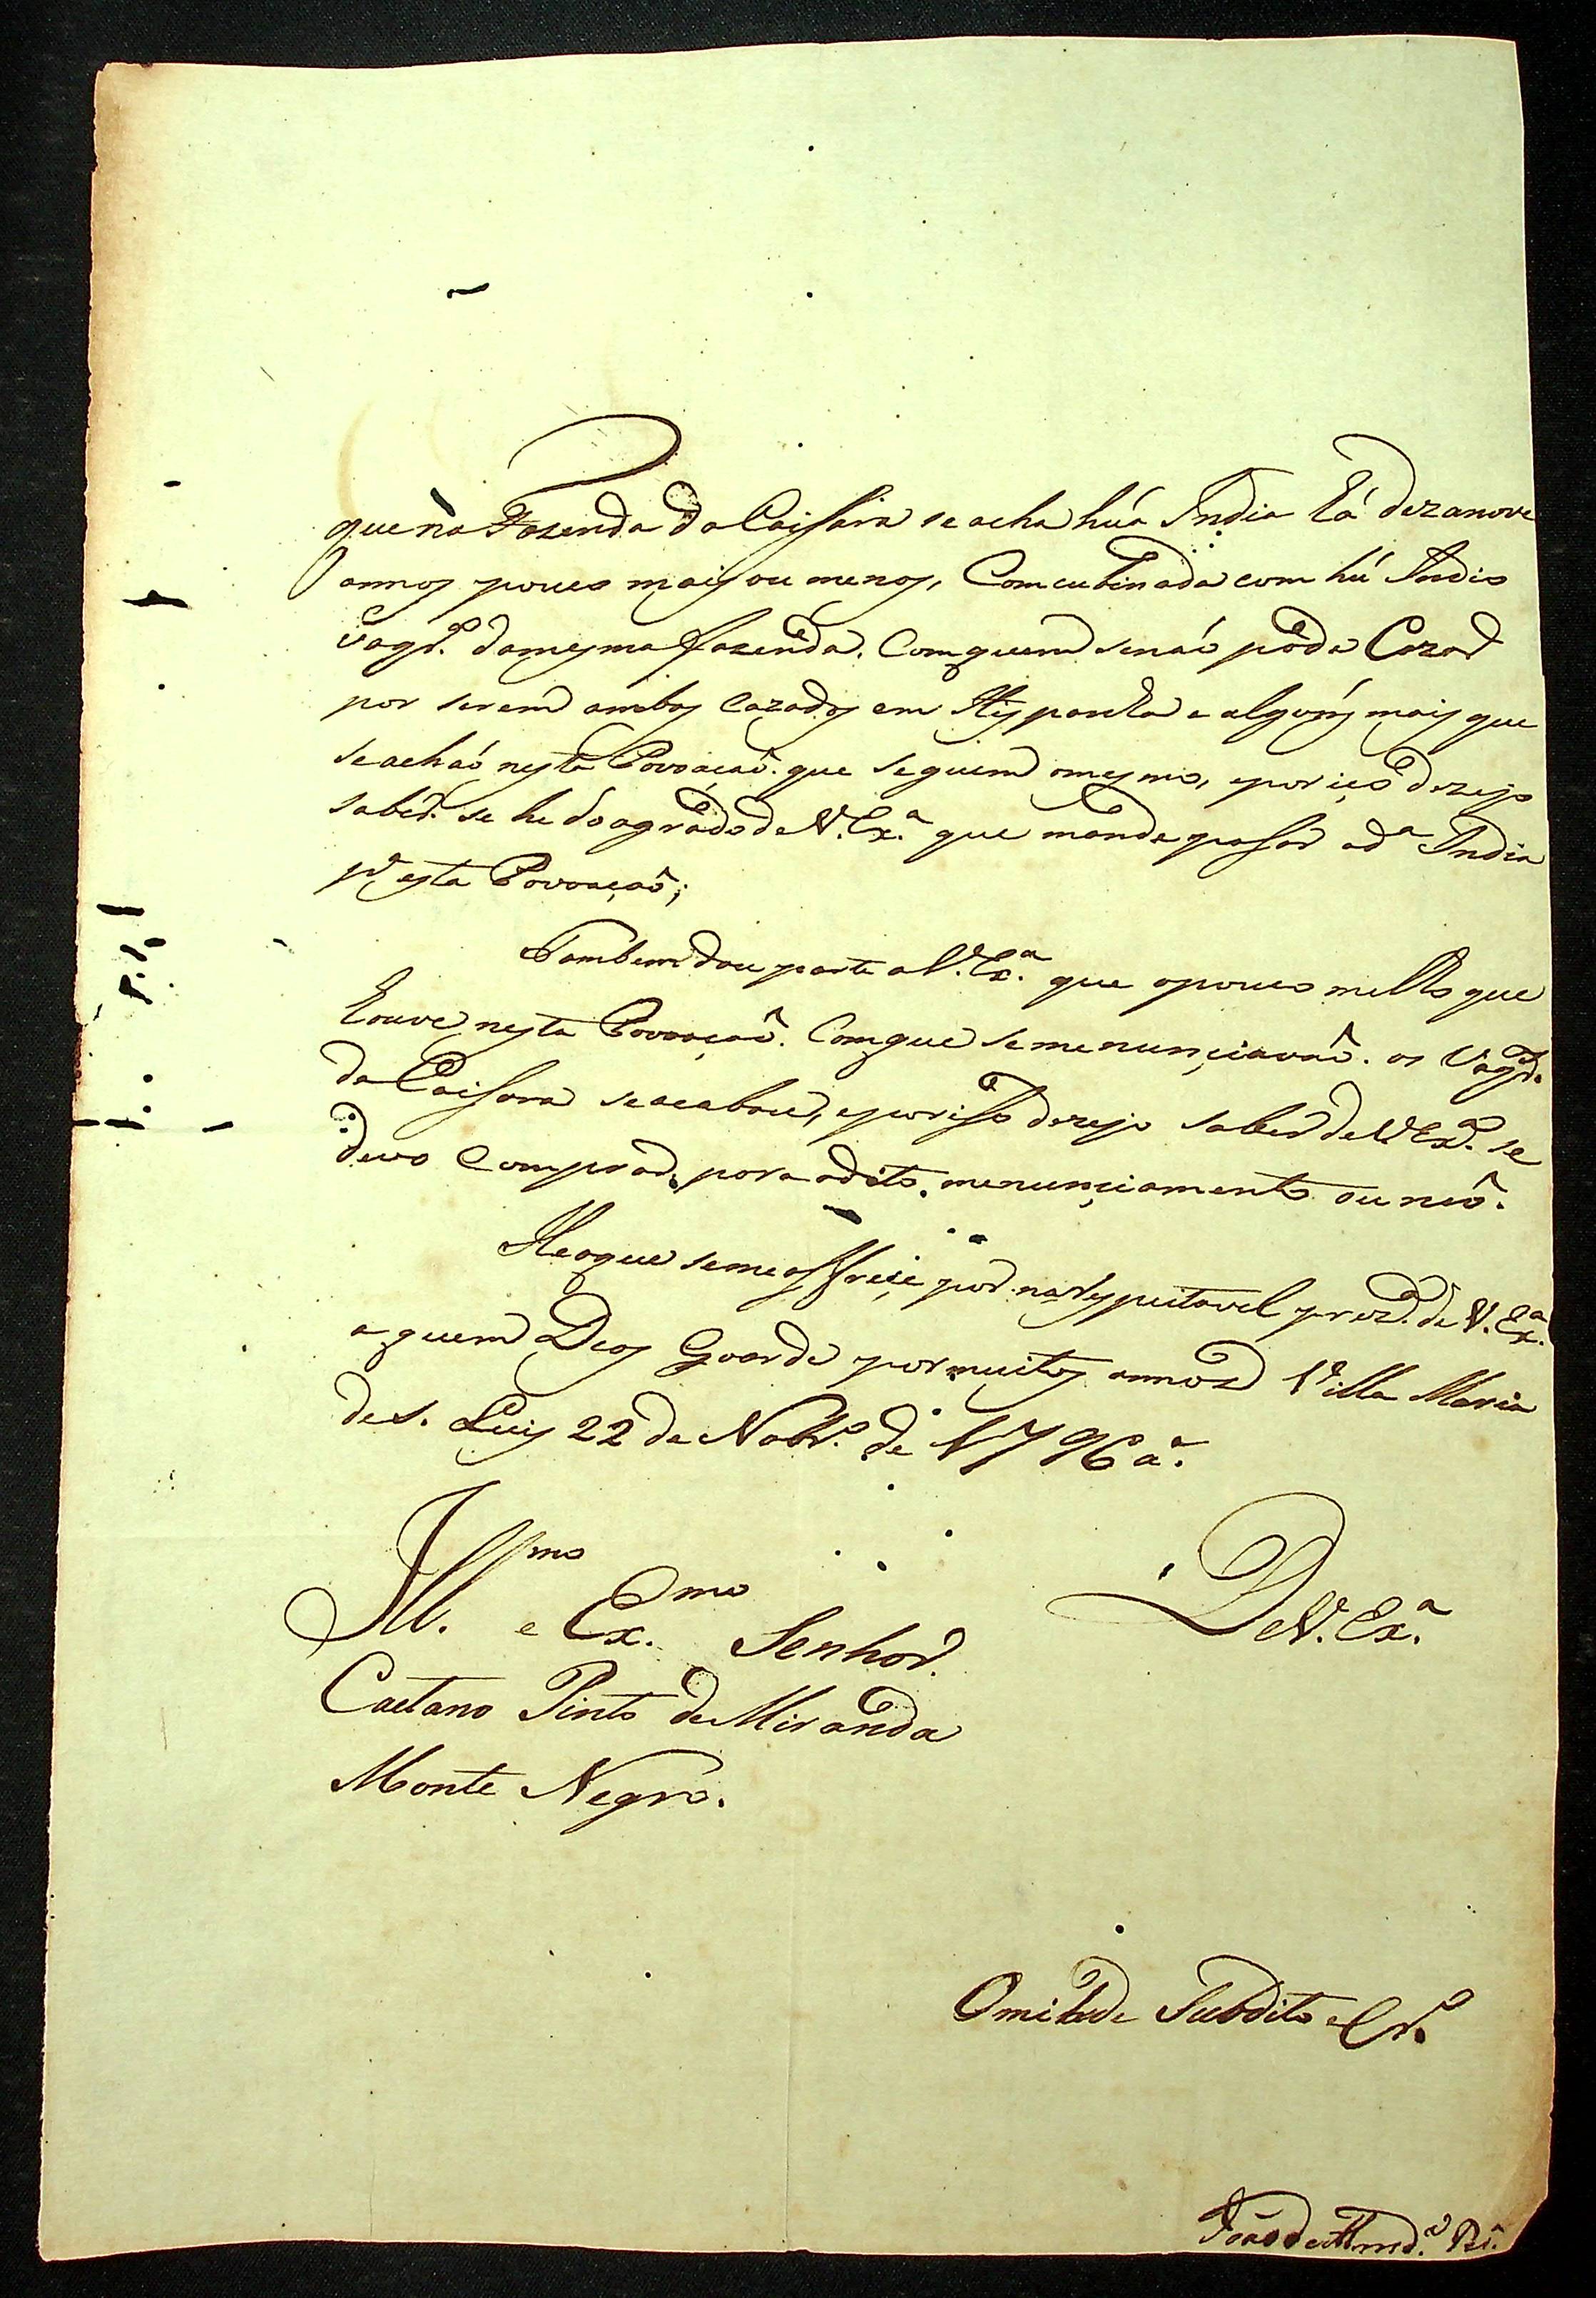 que na Fazenda da Caissara se acha húa India há dezanove
annos pouco mais ou menos, Comcubinada com hú Indio
Vaqr.º da mesma fazenda. Com quem se naó póde Cazar
por serem ambos Cazados em Hispanha e alguns mais que
se acháo nesta Povoaçaõ. que seguem o mesmo, e por iço dezejo
saber. se he do agrado de V. Ex.ª que mande passar a d.ª India
p.ª esta Povoaçaõ;
Tambem dou parte a V. Ex.ª que o pouco milho que
houve nesta Povoaçaõ. Com que se menunciavaõ. os Vaqr.os
da Caissara se acabou, e por isso dezejo saber de V Ex.ª se
devo Comprar. para o dito. menunciamento ou naõ.
He o que se me offreçe por. na respeitavel prez.ª de V. Ex.ª
a quem Deos Goarde por muitos annos Villa Maria
de S. Luis 22 de Nobr.º de 1796 a.
Ill.mo e Ex.mo Senhor.
De V. Ex.ª
Caetano Pinto de Miranda
Monte Negro.
O mi hde Subdito e Cr.º
João de Almd.ª Pr.ª